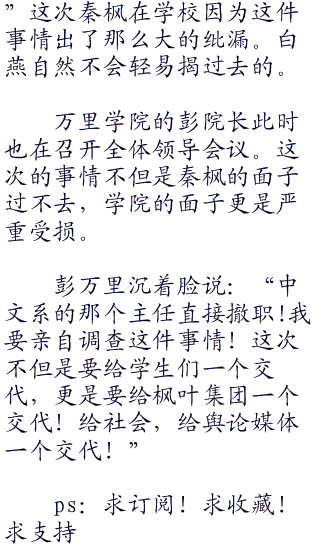 ”这次秦枫在学校因为这件
事情出了那么大的纰漏。白
燕自然不会轻易揭过去的。
万里学院的彭院长此时
也在召开全体领导会议。这
次的事情不但是秦枫的面子
过不去，学院的面子更是严
重受损。
彭万里沉着脸说：“中
文系的那个主任直接撤职!我
要亲自调查这件事情！这次
不但是要给学生们一个交
代，更是要给枫叶集团一个
交代！给社会，给舆论媒体
一个交代！”
ps：求订阅！求收藏！
求支持